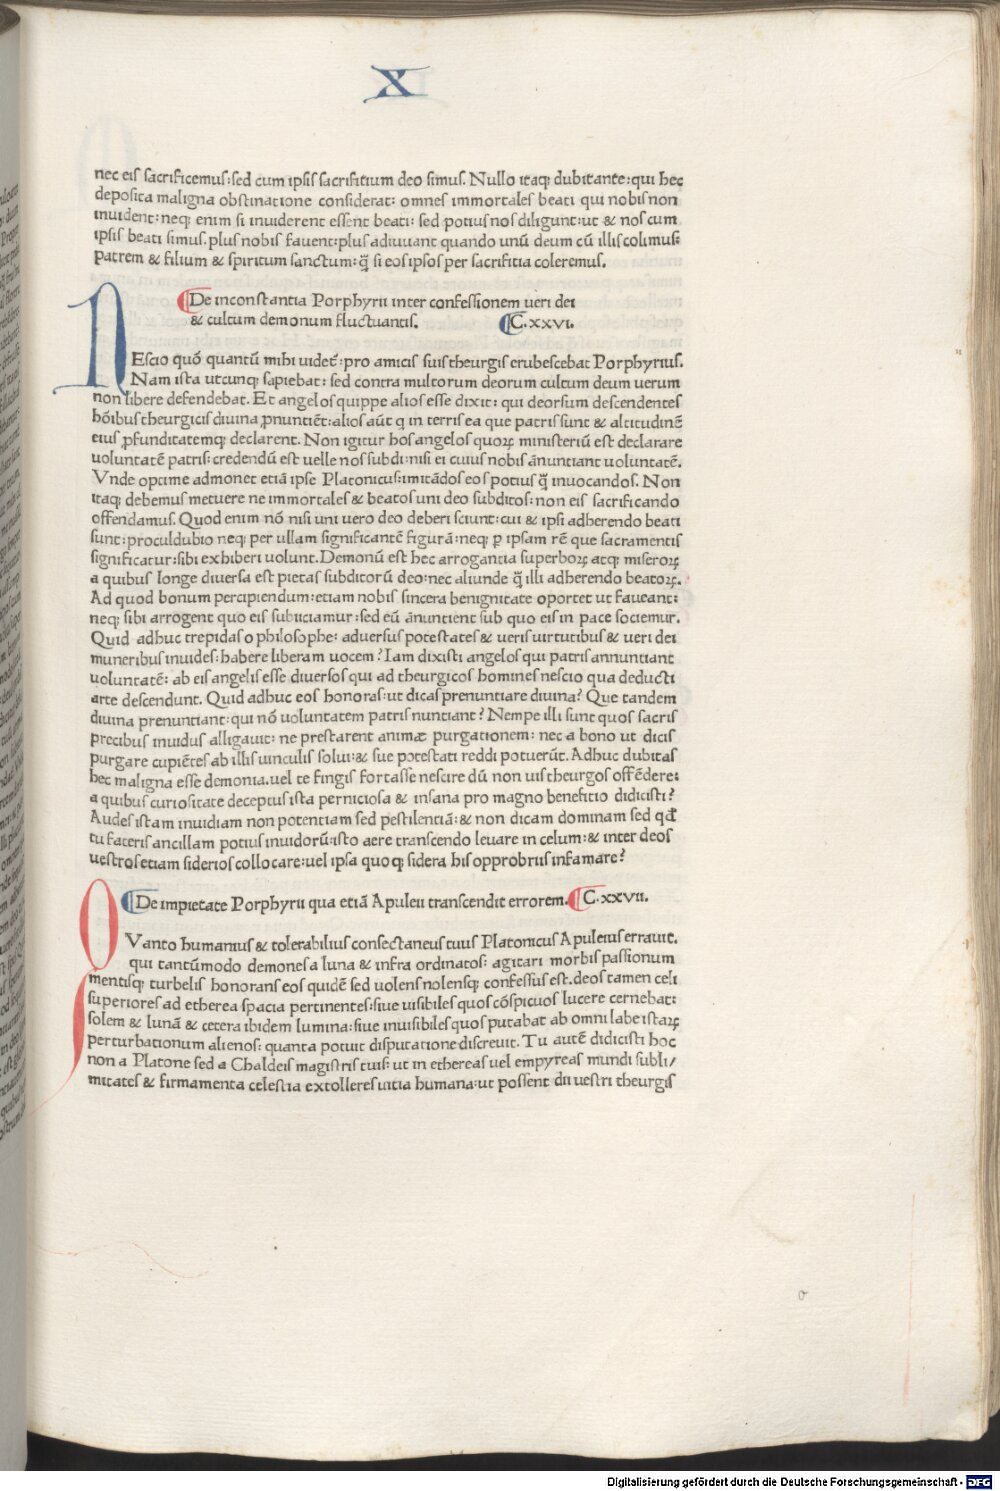 X
nec eis sacrificemus: sed cum ipsis sacrifitium deo simus. Nullo itaq; dubitante: qui hec
deposita maligna obstinatione considerat: omnes immortales beati qui nobis non
inuident: neq; enim si inuiderent essent beati: sed potius nos diligunt: ut & nos cum
ipsis beati simus. plus nobis fauent: plus adiuuant quando unū deum cū illis colimus:
patrem & filium & spiritum sanctum: q̄ si eos ipsos per sacrifitia coleremus.
De inconstantia Porphyrii inter confessionem ueri dei
& cultum demonum fluctuantis. C. xxvi.
NEscio quō quantū mihi uidet᷑: pro amicis suis theurgis erubescebat Porphyrius.
Nam ista utcunq; sapiebat: sed contra multorum deorum cultum deum uerum
non libere defendebat. Et angelos quippe alios esse dixit: qui deorsum descendentes
hōibus theurgicis diuina ꝓnuntiēt: alios aūt q in terris ea que patris sunt & altitudinē
eius ꝓfunditatemq; declarent. Non igitur hos angelos quorꝝ ministeriū est declarare
uoluntatē patris: credendū est uelle nos subdi: nisi ei cuius nobis ānuntiant uoluntatē.
Vnde optime admonet etiā ipse Platonicus: imitādos eos potius q̄ inuocandos. Non
itaq; debemus metuere ne immortales & beatos uni deo subditos: non eis sacrificando
offendamus. Quod enim nō nisi uni uero deo deberi sciunt: cui & ipsi adherendo beati
sunt: proculdubio neq; per ullam significantē figurā: neq; ꝑ ipsam rē que sacramentis
significatur: sibi exhiberi uolunt. Demonū est hec arrogantia superborꝝ atq; miserorꝝ
a quibus longe diuersa est pietas subditorū deo: nec aliunde q̄ illi adherendo beatorꝝ.
Ad quod bonum percipiendum: etiam nobis sincera benignitate oportet ut faueant:
neq; sibi arrogent quo eis subiiciamur: sed eū ānuntient sub quo eis in pace sociemur.
Quid adhuc trepidas o philosophe: aduersus potestates & ueris uirtutibus & ueri dei
muneribus inuides: habere liberam uocem? Iam dixisti angelos qui patris annuntiant
uoluntatē: ab eis angelis esse diuersos qui ad theurgicos homines nescio qua deducti
arte descendunt. Quid adhuc eos honoras: ut dicas prenuntiare diuina? Que tandem
diuina prenuntiant: qui nō uoluntatem patris nuntiant? Nempe illi sunt quos sacris
precibus inuidus alligauit: ne prestarent animæ purgationem: nec a bono ut dicis
purgare cupiētes ab illis uinculis solui: & sue potestati reddi potuerūt. Adhuc dubitas
hec maligna esse demonia. uel te fingis fortasse nescire dū non uis theurgos offēdere:
a quibus curiositate deceptus ista perniciosa & insana pro magno benefitio didicisti?
Audes istam inuidiam non potentiam sed pestilentiā: & non dicam dominam sed qd̄
tu fateris ancillam potius inuidorū: isto aere transcendo leuare in celum: & inter deos
uestros etiam siderios collocare: uel ipsa quoq; sidera his opprobriis infamare?
De impietate Porphyrii qua etiā Apuleii transcendit errorem. C. xxvii.
QVanto humanius & tolerabilius consectaneus tuus Platonicus Apuleius errauit.
qui tantūmodo demones a luna & infra ordinatos: agitari morbis passionum
mentisq; turbelis honorans eos quidē sed uolens nolensq; confessus est. deos tamen celi
superiores ad etherea spacia pertinentes: siue uisibiles quos cōspicuos lucere cernebat:
solem & lunā & cetera ibidem lumina: siue inuisibiles quos putabat ab omni labe istarꝝ
perturbationum alienos: quanta potuit disputatione discreuit. Tu autē didicisti hoc
non a Platone sed a Chaldeis magistris tuis: ut in ethereas uel empyreas mundi subli/
mitates & firmamenta celestia extolleres uitia humana: ut possent dii uestri theurgis
Digitalisierung gefördert durch die Deutsche Forschungsgemeinschaft - DFG